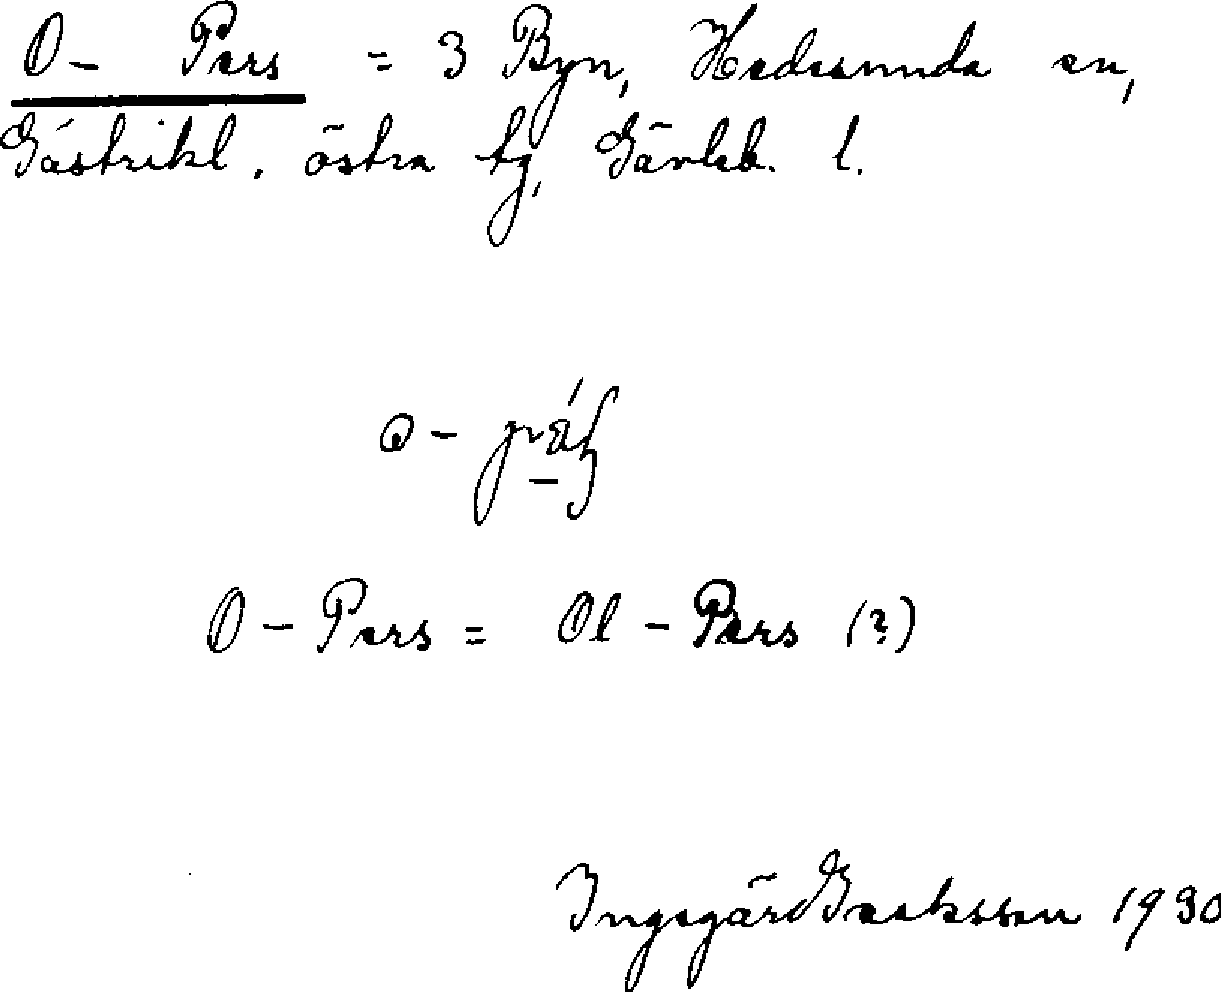 O- Pers = 3 Byn, Hedesunda sn,
Gästrikl. östra tg, Gävleb. l.
O - Pers = Ol - Pers (?)
Ingegärd 1930